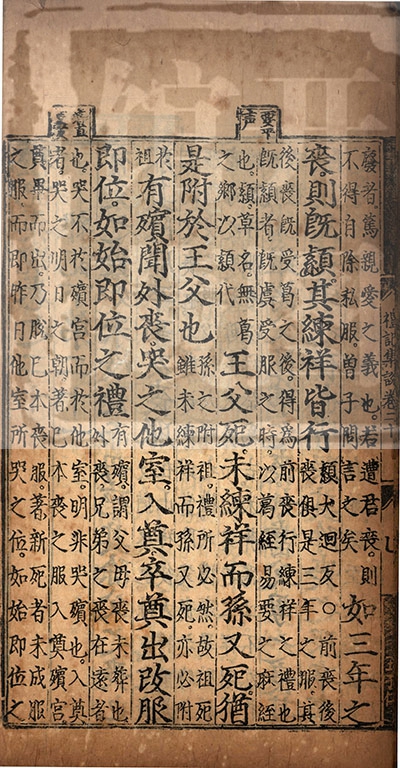 禮記集說卷
廢者篤親愛之義也。若遭君喪。則
不得自除私服。曾子問言之矣
如三年之
喪。則既顈。其練祥皆行
顈犬迥反○前喪後
喪俱是三年之服。其
後喪既受葛之後。得為前喪行練祥之禮也
既顈者。既虞受服之時。以葛絰易要之麻絰
也。顈草名。無葛
之鄉以顈代
王父死。未練祥而孫又死。猶
是附於王父也
孫之附祖。禮所必然。故祖死
雖未練祥而孫又死。亦必附
於
祖
有殯。聞外喪。哭之他室。入奠。卒奠出。改服
即位。如始即位之禮
有殯。謂父母喪未葬也
外喪。兄弟之喪在遠者
也。哭不於殯宮而於他室。明非哭殯也。入奠
者。哭之明日之朝。著己本喪之服入奠殯宮
奠畢而出。乃脫己本喪服。著新死者未成服
之服。而即昨日他室所哭之位。如始即位之
要平
聲